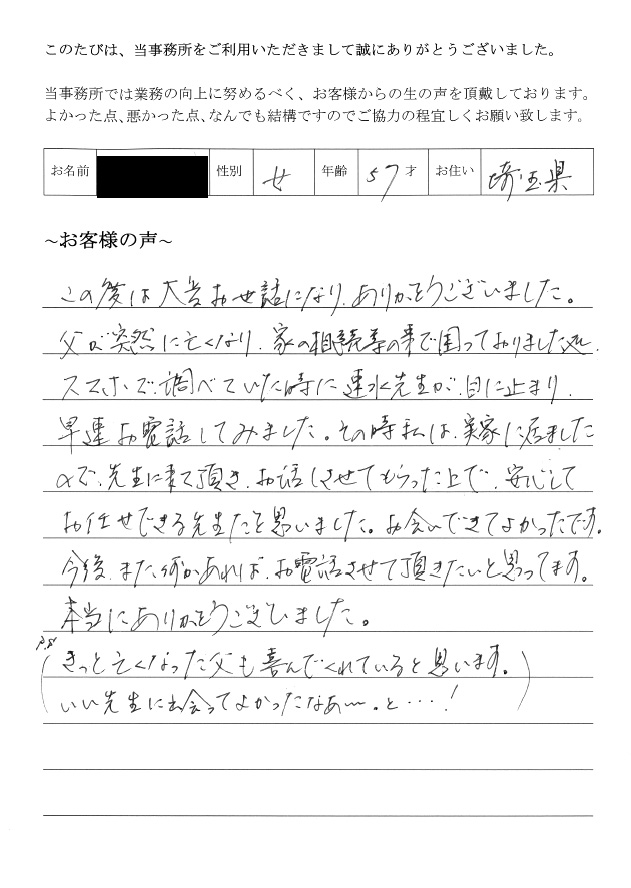 このたびは、当事務所をご利用いただきまして誠にありがとうございました。
当事務所では業務の向上に努めるべく、お客様からの生の声を頂戴しております。
よかった点、悪かった点、なんでも結構ですのでご協力の程宜しくお願い致します。
お名前 性別 女 年齢 57才 お住い 埼玉県
~お客様の声~
この度は大変お世話になり、ありがとうございました。
父が突然に亡くなり、家の相続等の事で困っておりました処、
スマホで調べていた時に速水先生が、目に止まり、
早速お電話してみました。その時私は、実家に居ました
ので、先生に来て頂き、お話しさせてもらった上で、安心して
お任せできる先生だと思いました。お会いできてよかったです。
今後、また何かあれば、お電話させて頂きたいと思ってます。
本当にありがとうございました。
P.S
(きっと亡くなった父も喜んでくれていると思います。
いい先生に出会ってよかったなぁ〜。と・・・!)